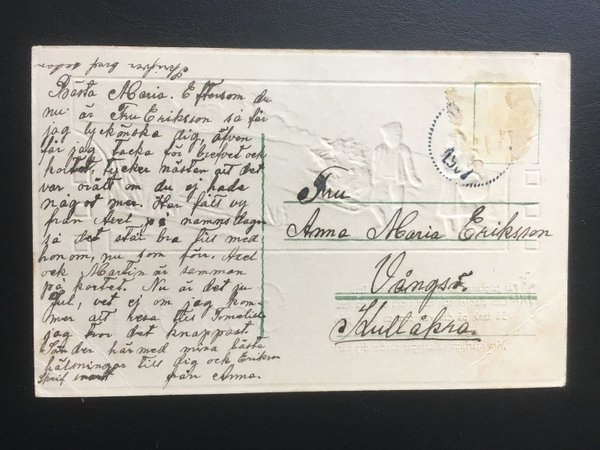 Skrifver bref sedan
Bästa Maria. Eftersom du
nu är Fru Eriksson så får
jag lyckönska dig, äfven
får jag tacka för brefvet och
kortet, tycker nästan att det
var orätt om du ej hade
något mer. Har fått vy
från Axel på namnsdagen
så det står bra till med
honom, nu som förr. Axel
och Martin är samman
på kortet. Nu är det ju
Jul, vet ej om jag kom-
mer att resa till Tomelilla
jag tror det knappast.
Sänder härmed mina bästa
hälsningar till dig och Eriksson
Skrif snart från Anna.
1907
Fru
Anna Maria Eriksson
Vångsö.
Kullåkra.